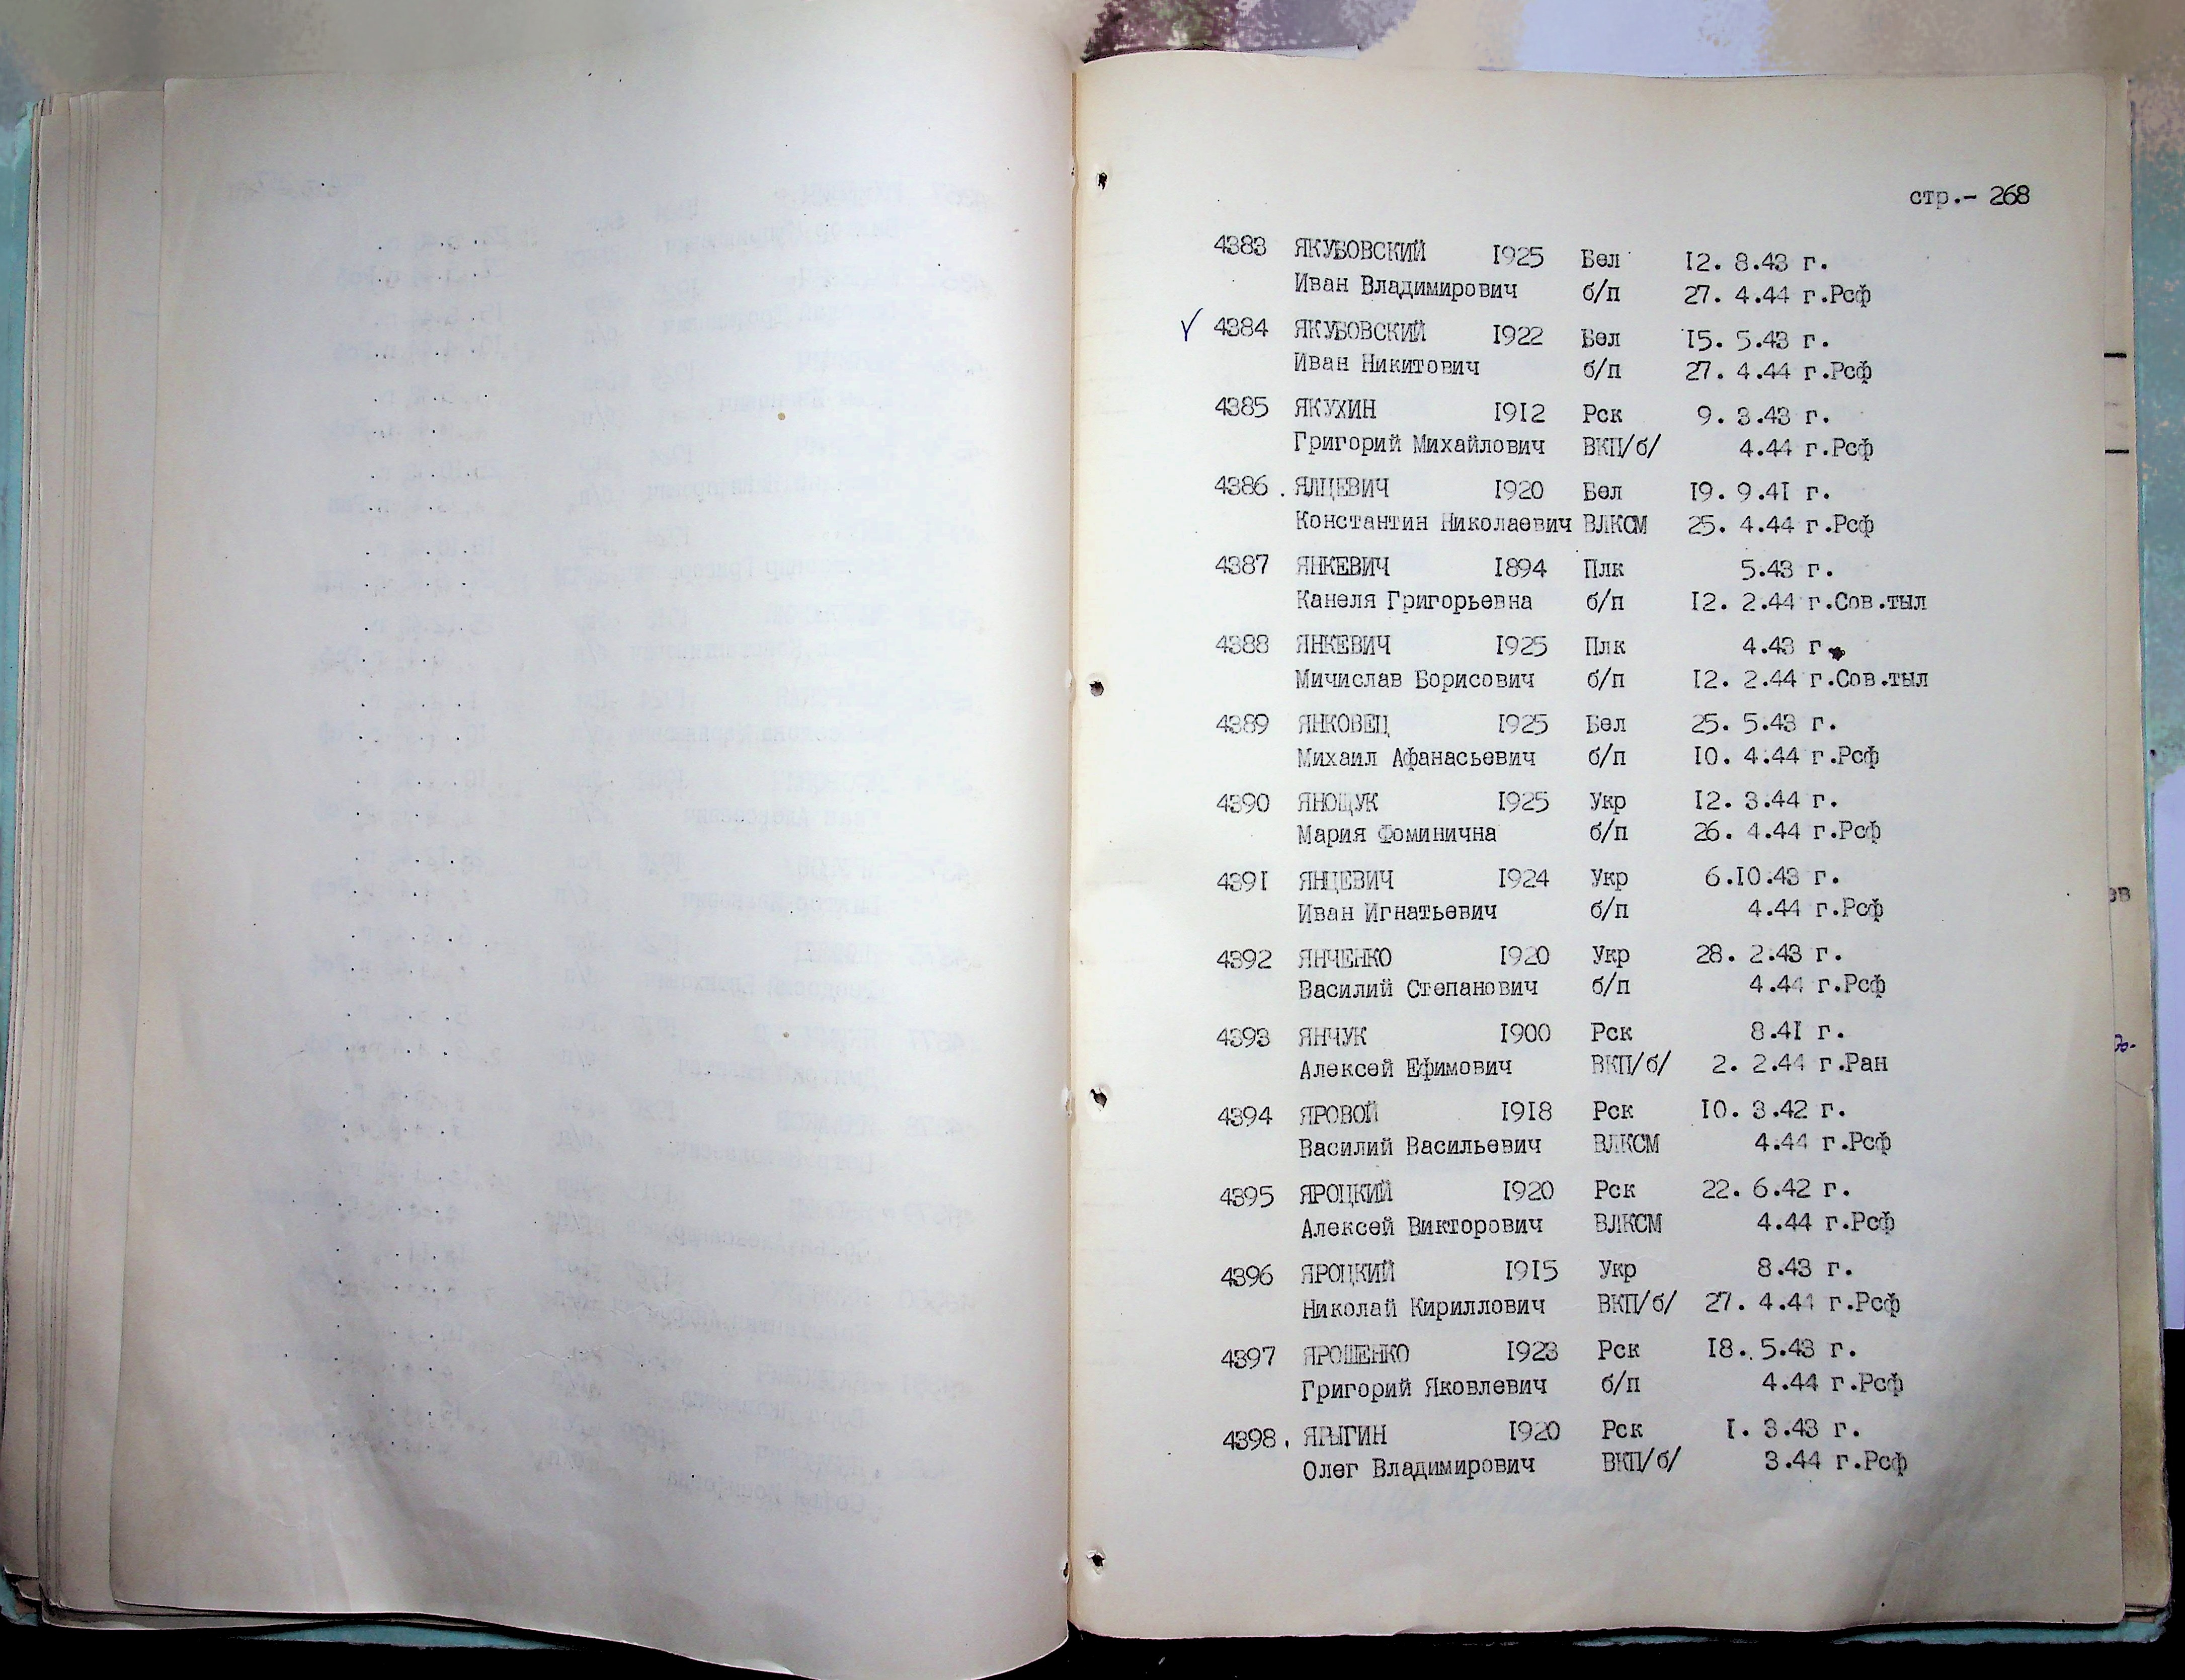 стр.- 268
4383 ЯКУБОВСКИЙ 1925 Бел 12. 8.43 г.
Иван Владимирович б/п 27. 4.44 г.Рсф
√ 4384 ЯКУБОВСКИЙ 1922 Бел 15. 5.43 г.
Иван Никитович б/п 27. 4.44 г.Рсф
4385 ЯКУХИН 1912 Рск 9. 3.43 г.
Григорий Михайлович ВКП/б/ 4.44 г.Рсф
4386 . ЯЛЦЕВИЧ 1920 Бел 19. 9.41 г.
Константин Николаевич ВЛКСМ 25. 4.44 г.Рсф
4387 ЯНКЕВИЧ 1894 Плк 5.43 г.
Канеля Григорьевна б/п 12. 2.44 г.Сов.тыл
4388 ЯНКЕВИЧ 1925 Плк 4.43 г.
Мичислав Борисович б/п 12. 2.44 г.Сов.тыл
4389 ЯНКОВЕЦ 1925 Бел 25. 5.43 г.
Михаил Афанасьевич б/п 10. 4.44 г.Рсф
4390 ЯНОЩУК 1925 Укр 12. 3.44 г.
Мария Фоминична б/п 26. 4.44 г.Рсф
4391 ЯНЦЕВИЧ 1924 Укр 6.10.43 г.
Иван Игнатьевич б/п 4.44 г.Рсф
4392 ЯНЧЕНКО 1920 Укр 28. 2.43 г.
Василий Степанович б/п 4.44 г.Рсф
4393 ЯНЧУК 1900 Рск 8.41 г.
Алексей Ефимович ВКП/б/ 2. 2.44 г.Ран
4394 ЯРОВОЙ 1918 Рск 10. 3.42 г.
Василий Васильевич ВЛКСМ 4.44 г.Рсф
4395 ЯРОЦКИЙ 1920 Рск 22. 6.42 г.
Алексей Викторович ВЛКСМ 4.44 г.Рсф
4396 ЯРОЦКИЙ 1915 Укр 8.43 г.
Николай Кириллович ВКП/б/ 27. 4.44 г.Рсф
4397 ЯРОШЕНКО 1923 Рск 18. 5.43 г.
Григорий Яковлевич б/п 4.44 г.Рсф
4398. ЯРЫГИН 1920 Рск 1. 3.43 г.
Олег Владимирович ВКП/б/ 3.44 г.Рсф